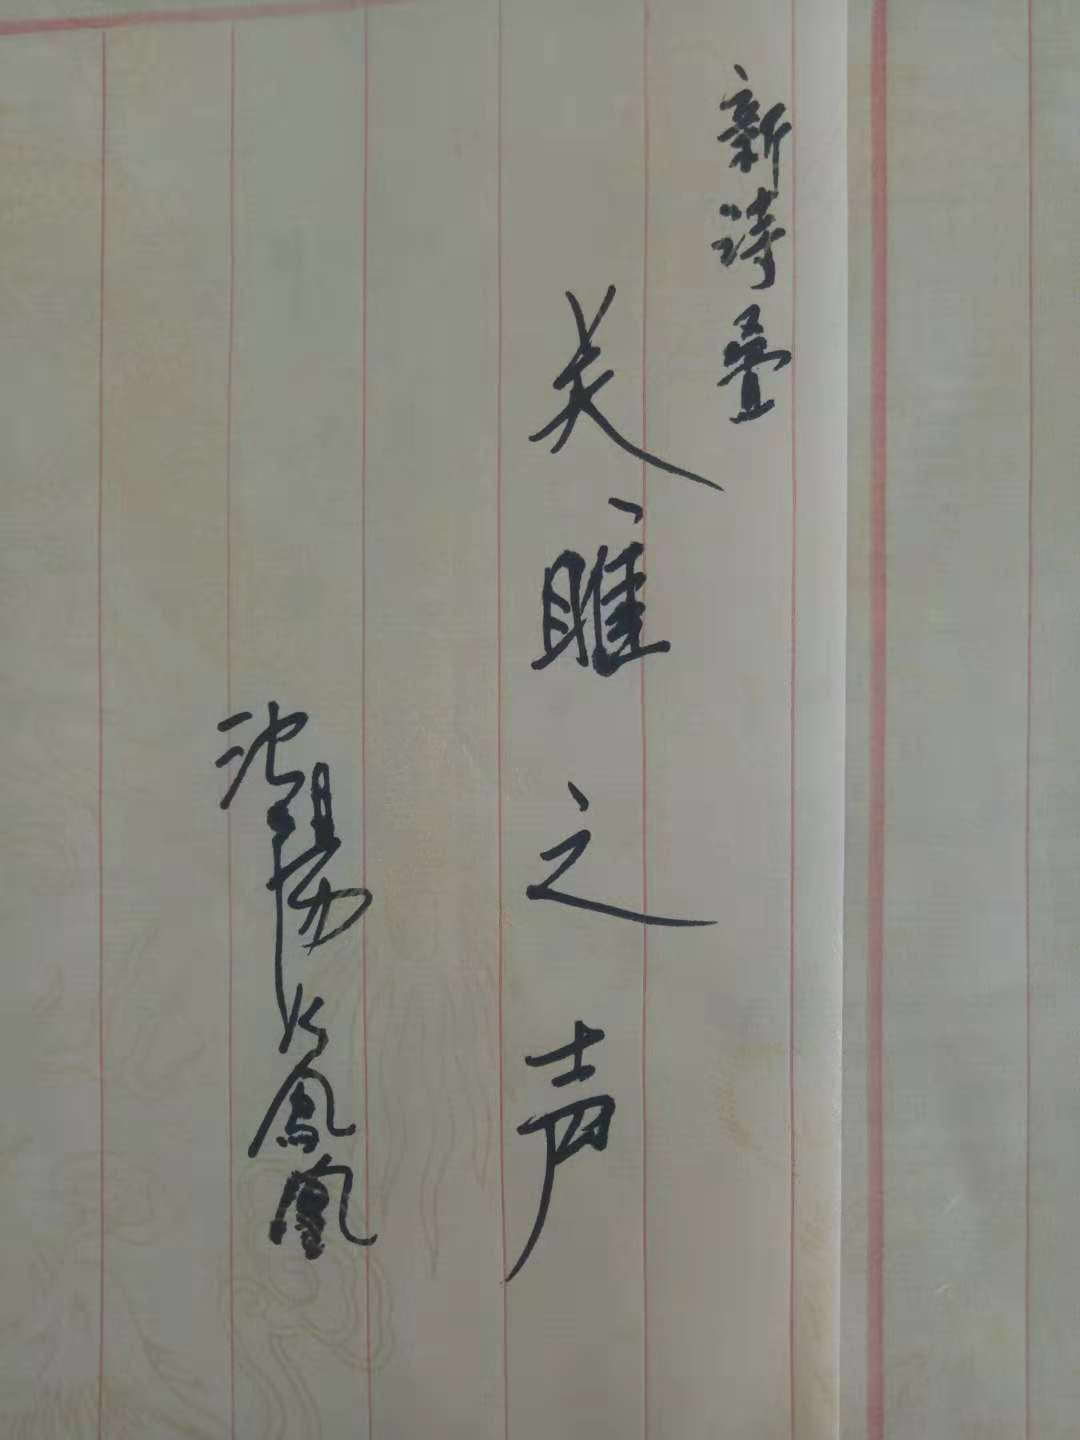 新诗叠
关雎之声
沈阳火凤凰